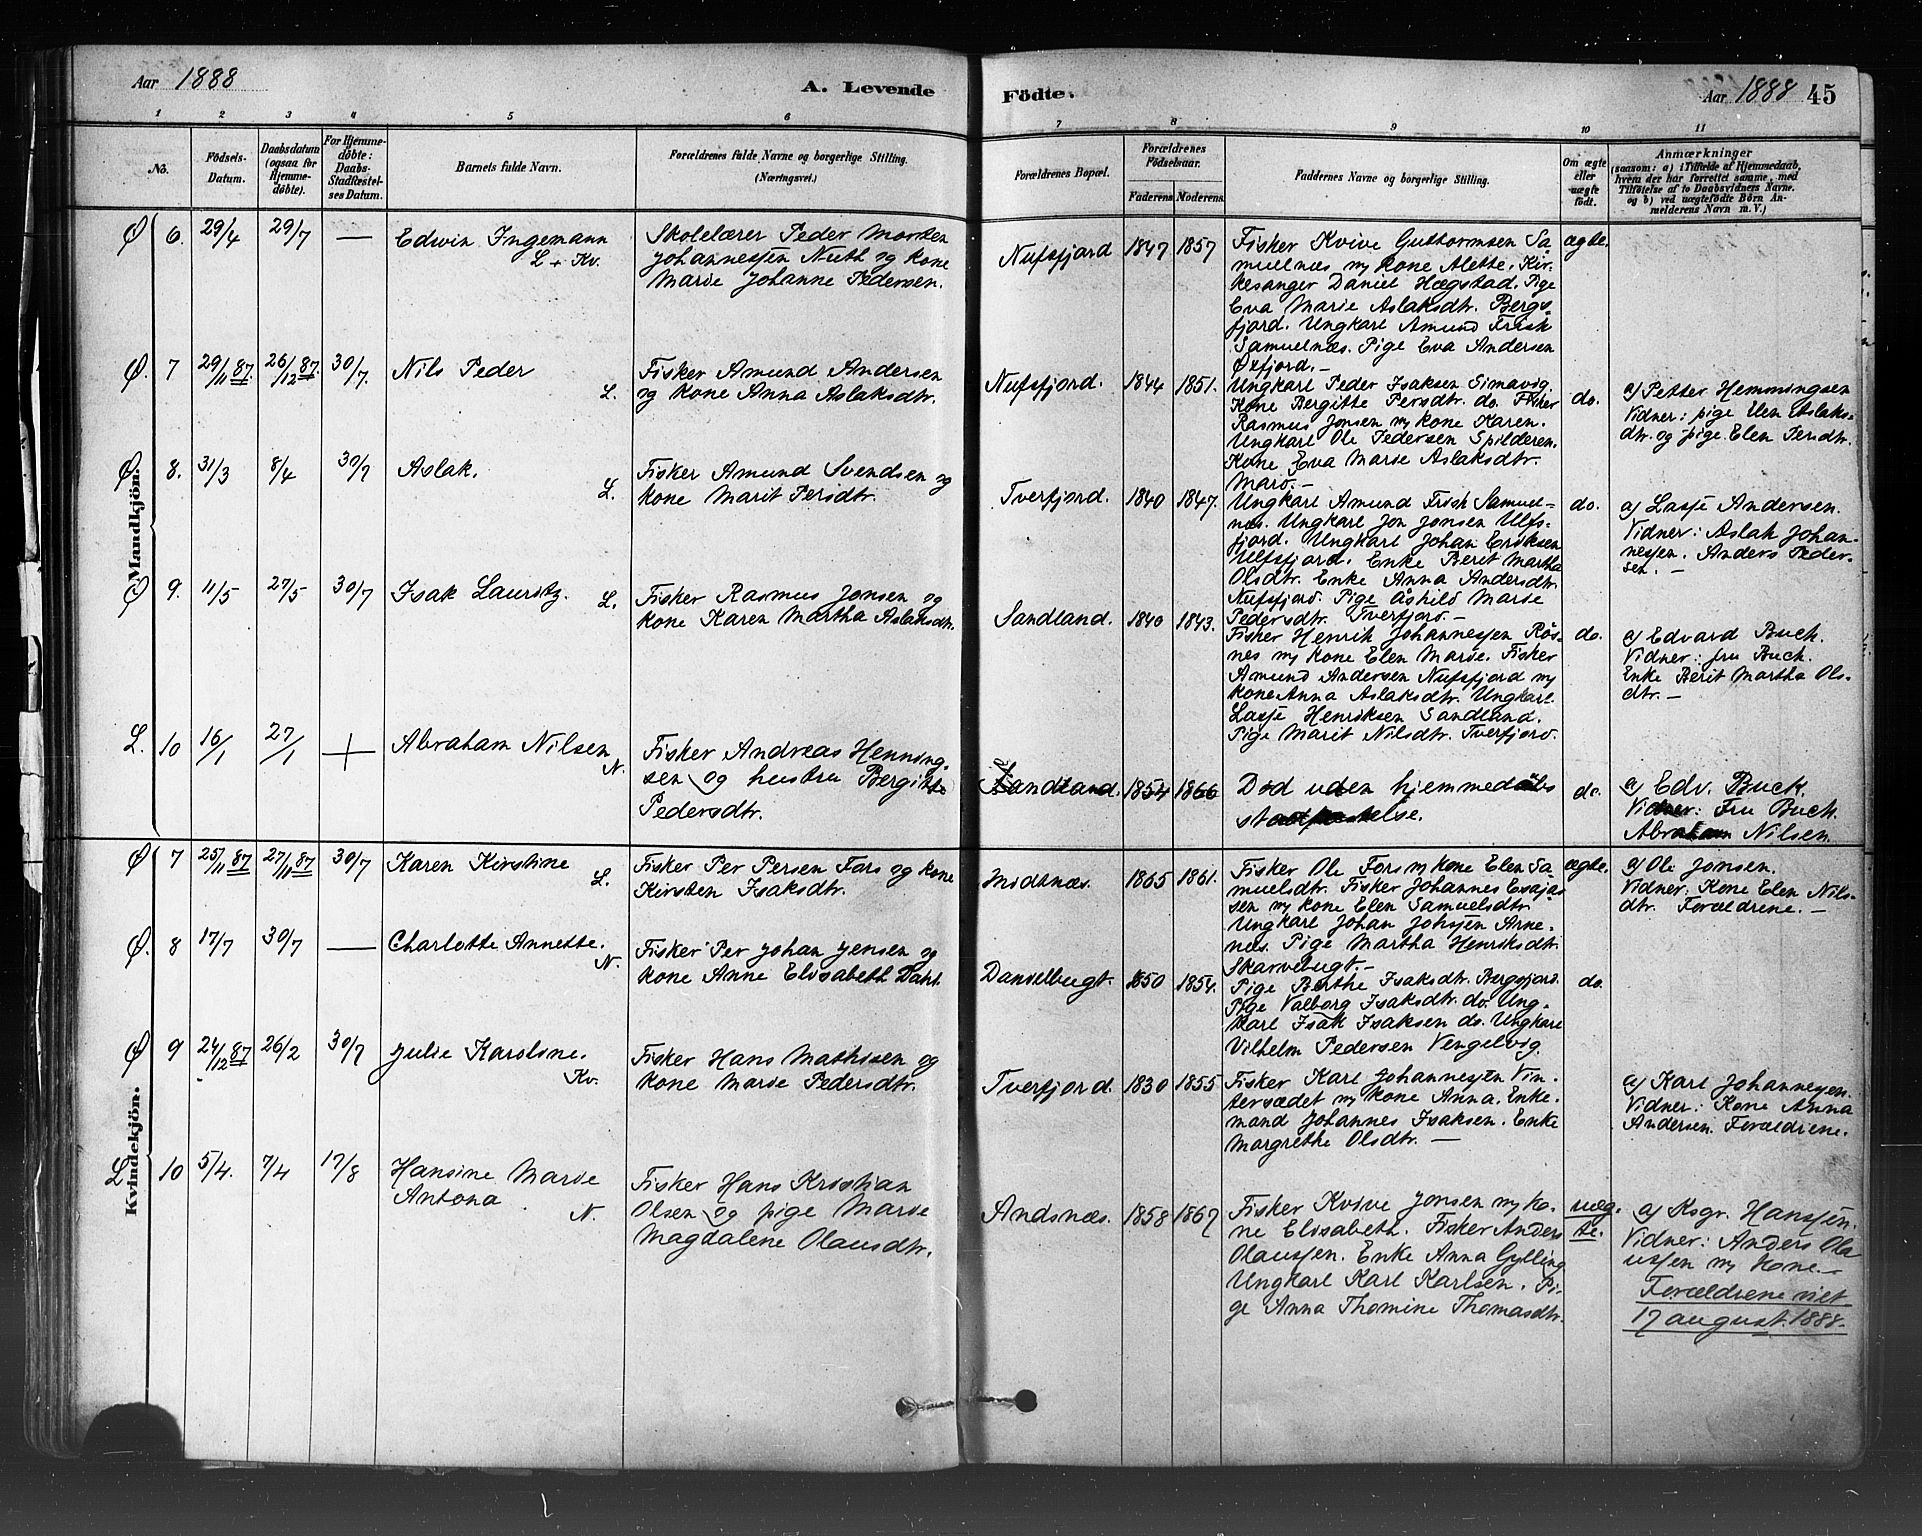 Aar 1888
A. Levende
Födte.
Aar 1888 45
1 2 3 4 5 6 7 8 9 10 11
No.
Födsels-
Datum.
Daabsdatum
(ogsaa for
Hjemme-
döbte).
For Hjemme-
döbte:
Daabs-
Stadfæstel-
ses Datum.
Barnets fulde Navn.
Forældrenes fulde Navne og borgerlige Stilling.
(Næringsvei.)
Forældrenes Bopæl.
Forældrenes
Födselsaar.
Faderens Moderens
Faddernes Navne og borgerlige Stilling.
Om ægte
eller
uægte
födt.
Anmærkninger
(saasom: a) i Tilfælde af Hjemmedaab,
hvem der har forrettet samme, med
Tilföielse af to Daabsvidners Navne.
og b) ved uægtefödte Börn An-
melderens Navn m. V.)
Mandkjön.
Ø 6. 29/4 29/7 — Edwin Ingemann
L + Kv.
Skolelærer Peder Morten
Johannessen Nuth og kone
Marie Johanne Pedersen.
Nufsfjord 1847 1857
Fisker Kvive Guttormsen Sa
muelnæs m/ kone Alette. Kir-
kesanger Daniel Hægstad. Pige
Eva Marie Aslaksdtr. Bergs-
fjord. Ungkarl Amund Frisk
Samuelnæs. Pige Eva Andersen
Øxfjord.—
ægte.
Ø. 7 29/11 87. 26/12 87. 30/7. Nils Peder
L.
Fisker Amund Andersen
og kone Anna Aslaksdtr.
Nufsfjord. 1844 1851.
Ungkarl Peder Isaksen Simavig.
Kone Bergitte Persdtr. do. Fisker
Rasmus Jonsen m/ kone Karen.
Ungkarl Ole Pedersen Spilderen.
Kone Eva Marie Aslaksdtr.
Marö.—
do.
a) Petter Hemmingsen
Vidner: pige Elen Aslaks-
dtr. og pige Elen Persdtr.
Ø 8. 31/3 8/4 30/7 Aslak.
L.
Fisker Amund Svendsen og
kone Marit Persdtr.
Tverfjord. 1840 1847.
Ungkarl Amund Frisk Samuel-
næs. Ungkarl Jon Jonsen Ulfs-
fjord. Ungkarl Johan Eriksen
Ulfsfjord. Enke Berit Martha
Olsdtr. Enke Anna Andersdtr.
Nufsfjord. Pige Åshild Marie
Pedersdtr. Tverfjord.—
do.
a) Lasse Andersen.
Vidner: Aslak Johan-
nessen. Anders Peder-
sen. —
Ø 9. 11/5 27/5 30/7 Isak Lauritz.
L.
Fisker Rasmus Jonsen og
kone Karen Martha Aslaksdtr.
Sandland. 1840 1843.
Fisker Henrik Johannessen Rös-
nes m/ kone Elen Marie. Fisker
Amund Andersen Nufsfjord m/
kone Anna Aslaksdtr. Ungkarl
Lasse Henriksen Sandland.
Pige Marit Nilsdtr. Tverfjord.
do.
a) Edvard Buch.
Vidner: fru Buch.
Enke Berit Martha Ols-
dtr.—
L. 10 16/1 27/1 + Abraham Nilsen
N.
Fisker Andreas Henning-
sen og hustru Bergitte
Pedersdtr.
Sandland. 1854 1866
Död uden hjemmedåbs
stadfæstelse.
do.
a) Edv. Buck.
Vidner: Fru Buch.
Abraham Nilsen.
Kvindekjön.
Ø 7 25/11 87 27/11 87 30/7 Karen Kirstine
L.
Fisker Per Persen Fors og kone
Kirsten Isaksdtr.
Midtnæs. 1865 1861.
Fisker Ole Fors m/ kone Elen Sa
muelsdtr. Fisker Johannes Esajas
sen m/ kone Elen Samuelsdtr.
Ungkarl Johan Johnsen Arne-
næs. Pige Martha Henriksdtr.
Skarvebugt.—
ægte.
a) Ole Jonsen.
Vidner: Kone Elen Nils-
dtr. Forældrene.—
Ø. 8 17/7 30/7 — Charlotte Annette.
N.
Fisker Per Johan Jensen og
kone Anne Elisabeth Dahl.
Danselbugt. 1850 1854.
Pige Berthe Isaksdtr. Bergsfjord.
Pige Valborg Isaksdtr. do. Ung-
karl Isak Isaksen do. Ungkarl
Vilhelm Pedersen Vengelvig.
do.
Ø 9 24/12 87 26/2 30/7 Julie Karoline.
Kv.
Fisker Hans Mathisen og
kone Marie Pedersdtr.
Tverfjord. 1830 1855
Fisker Karl Johannessen Vin-
tersædet m/ kone Anna. Enke-
mand Johannes Isaksen. Enke
Margrethe Olsdtr. —
a) Karl Johannessen.
Vidner: Kone Anna
Andersen. Forældrene.
L 10 5/4. 7/4 17/8 Hansine Marie
Antona
N.
Fisker Hans Kristian
Olsen og pige Marie
Magdalene Olausdtr.
Andsnæs. 1858 1867
Fisker Kvive Jonsen m/ ko-
ne Elisabeth. Fisker Anders
Olaussen. Enke Anna Gylling
Ungkarl Karl Karlsen. Pi-
ge Anna Thomine Thomasdtr.
uæg-
te.
a) Ksgr. Hanssen.
Vidner: Anders Ola
ussen m/ kone.—
Forældrene viet
17 august. 1888.